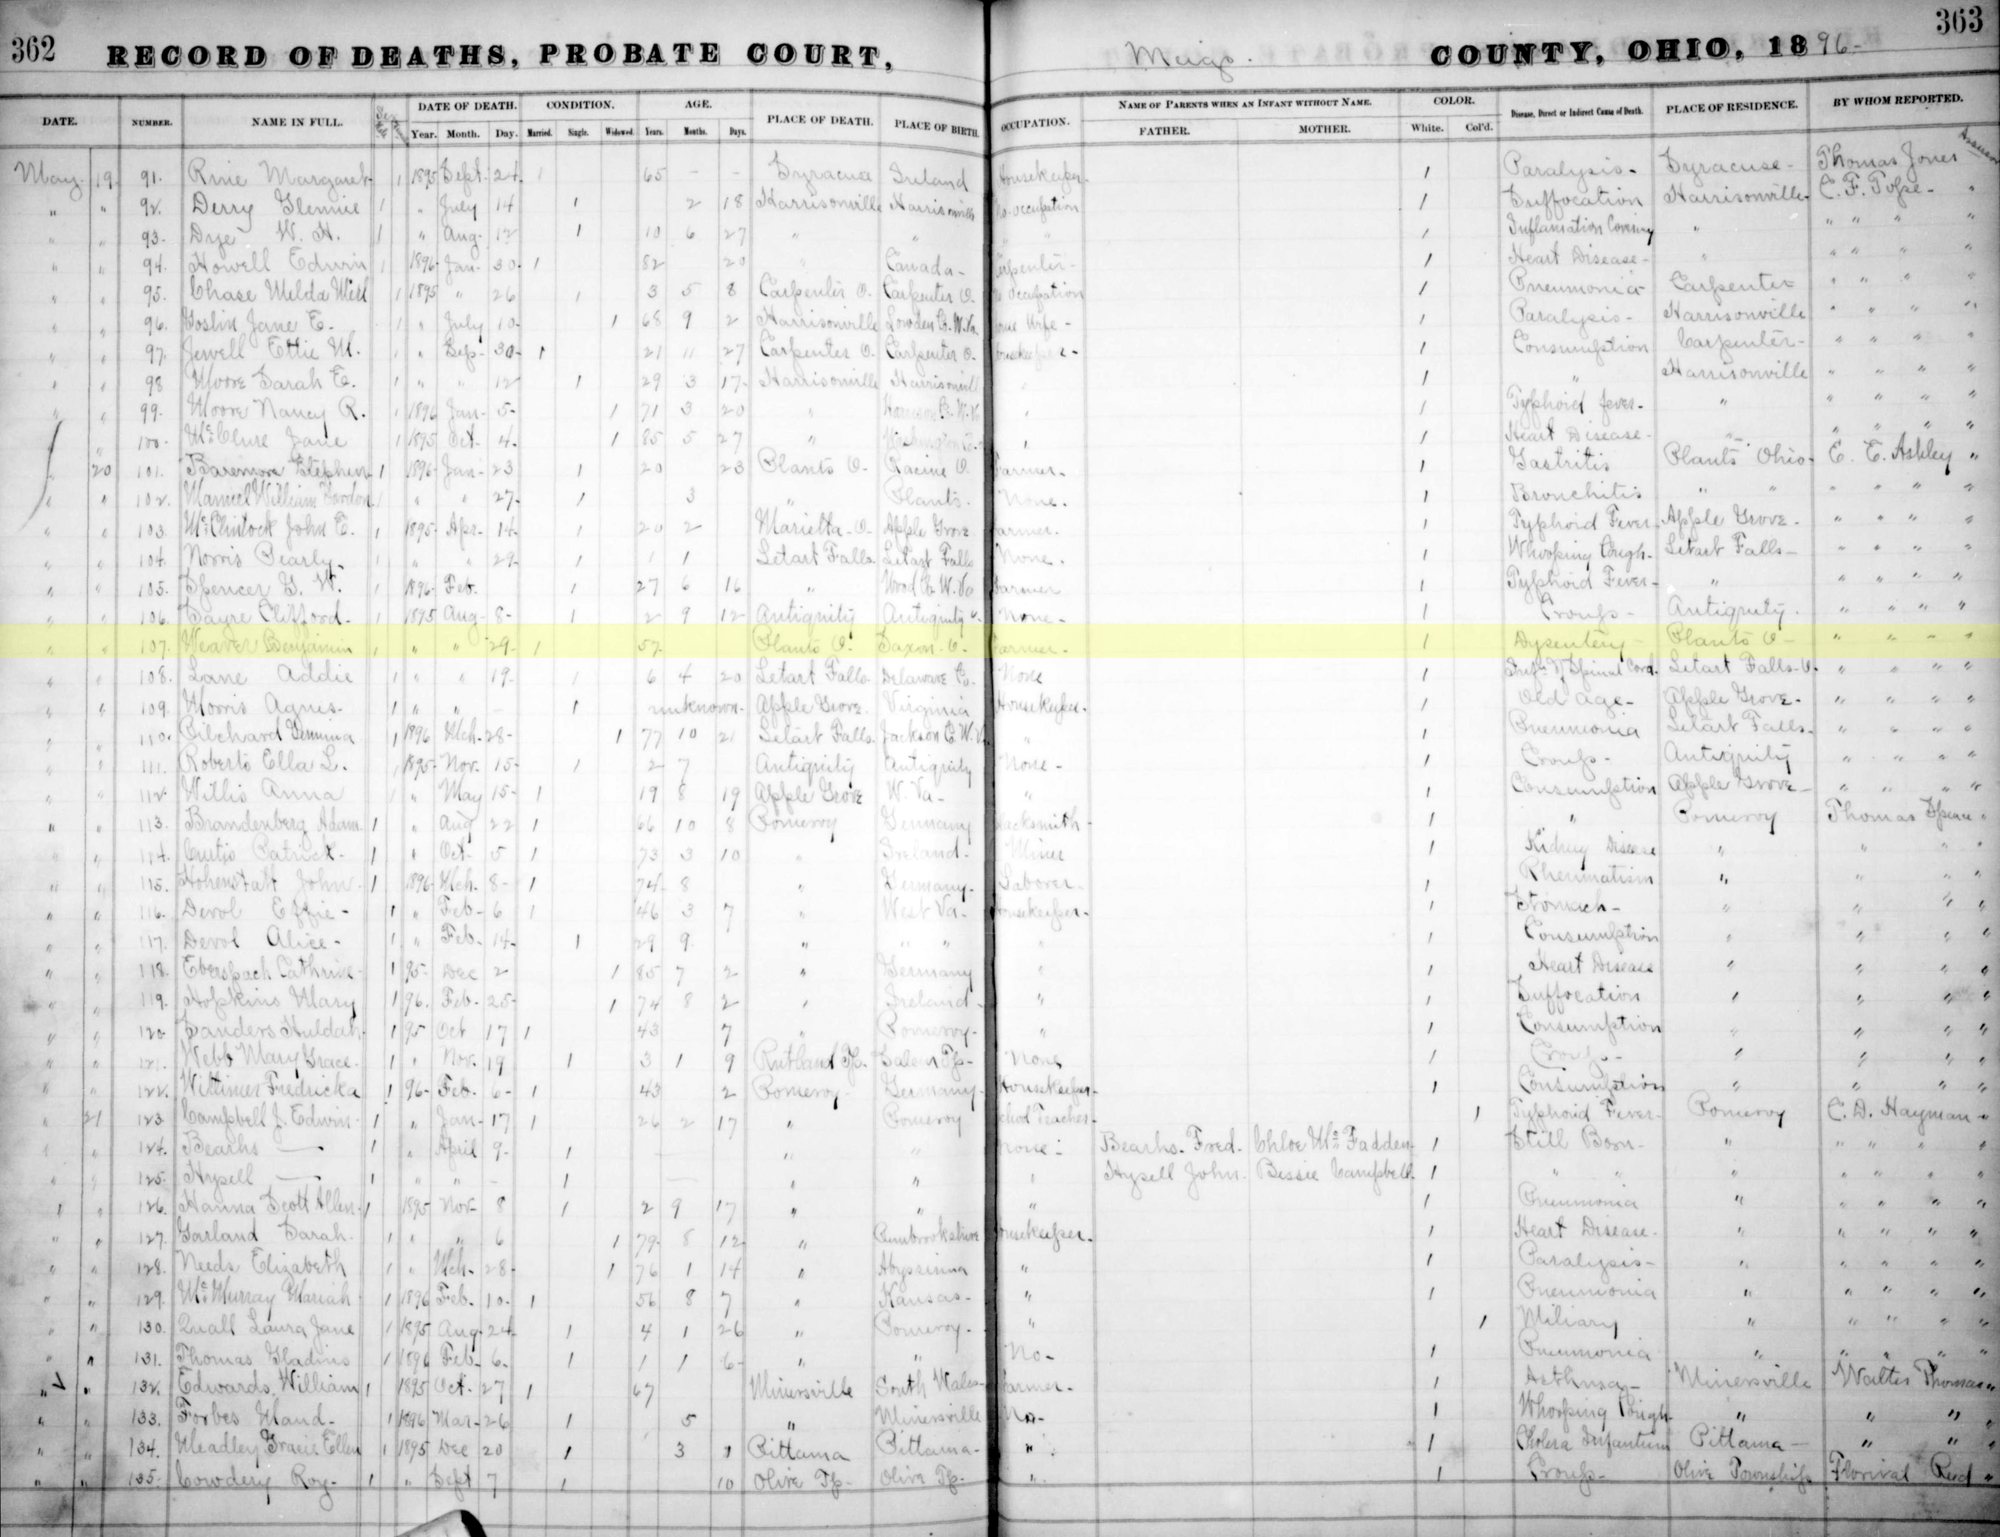 362
363
RECORD OF DEATHS, PROBATE COURT, Meigs. COUNTY, OHIO, 1896-
DATE. NUMBER. NAME IN FULL. DATE OF DEATH. CONDITION. AGE. PLACE OF DEATH. PLACE OF BIRTH. OCCUPATION. NAME OF PARENTS WHEN AN INFANT WITHOUT NAME. COLOR. Disease, Direct or Indirect Cause of Death. PLACE OF RESIDENCE. BY WHOM REPORTED.
Year. Month. Day. Married. Single. Widowed. Years. Months. Days. FATHER. MOTHER. White. Col'd.
May 19 91. Rine Margaret 1 1895 Sept. 24. 1 65 - - Syracuse Ireland Housekeeper. 1 Paralysis- Syracuse- Thomas Jones Assessor
" " 92. Derry Glennie 1 " July 14 1 2 18 Harrisonville Harrisonville No occupation 1 Suffocation Harrisonville C. F. "
" " 93. Dye W. H. 1 " Aug- 12 1 10 6 27 " " " " 1 Inflamation " " " " "
" " 94. Howell Edwin 1 1896 Jan- 30. 1 82 20 " Canada- Carpenter- 1 Heart Disease- " " " " "
" " 95. Chase Melda 1 1895 " 26 1 3 5 8 Carpenter O. Carpenter O. No occupation 1 Pneumonia Carpenter " " " "
" " 96. Joslin Jane E. 1 " July 10- 1 68 9 2 Harrisonville W. Va. House Wife- 1 Paralysis- Harrisonville " " " "
" " 97. Jewell Ettie M. 1 " Sep- 30- 1 21 11 27 Carpenter O. Carpenter O. Housekeeper- 1 Consumption Carpenter- " " " "
" " 98 Moore Sarah E. 1 " " 12 1 29 3 17- Harrisonville Harrisonville " 1 " Harrisonville " " " "
" " 99. Moore Nancy R. 1 1896 Jan- 5- 1 71 3 20 " W. Va " 1 Typhoid fever- " " " " "
" 100. McClure Jane 1 1895 Oct- 4- 1 85 5 27 " " 1 Heart Disease- " " " " "
" 20 101. Baremore Stephen 1 1896- Jan- 23 1 20 23 Plants O- Racine O. Farmer- 1 Gastritis Plants Ohio- E. E. Ashley "
" " 102. William Gordon 1 " " 27- 1 3 " Plants. None. 1 Bronchitis " " " " " "
" " 103. McClintock John E. 1 1895- Apr- 14- 1 20 2 Marietta-O- Apple Grove Farmer. 1 Typhoid Fever- Apple Grove- " " " "
" " 104. Norris Pearly- 1 " " 29- 1 1 1 Letart Falls- Letart Falls None- 1 Whooping Cough- Letart Falls- " " " "
" " 105. Spencer G. W. 1 1896- Feb. 1 27 6 16 " Wood Co W. Va Farmer 1 Typhoid Fever- " " " " "
" " 106. Sayre Clifford- 1 1895 Aug- 8- 1 2 9 12 Antiquity Antiquity O. None- 1 Croup- Antiquity. " " " "
" " 107. Weaver Benjamin 1 " " 29- 1 57 Plants O. Saxon- O. Farmer- 1 Dysentery- Plants O- " " " "
" " 108. Lane Addie 1 " " 19- 1 6 4 20 Letart Falls Delaware Co. None 1 Spinal Cord. Letart Falls-O. " " " "
" " 109. Morris Agnes- 1 " " - 1 unknown- Apple Grove. Virginia Housekeeper- 1 Old Age- Apple Grove- " " " "
" " 110. Pilchard Jemima 1 1896 Mch- 28- 1 77 10 21 Letart Falls- Jackson Co W. Va. " 1 Pneumonia Letart Falls- " " " "
" " 111. Roberts Ella L. 1 1895- Nov. 15- 1 2 7 Antiquity Antiquity None- 1 Croup- Antiquity " " " "
" " 112 Willis Anna 1 " May 15- 1 19 8 19 Apple Grove W. Va- " 1 Consumption Apple Grove- " " " "
" " 113. Brandenberg Adam 1 " Aug 22 1 66 10 8 Pomeroy Germany Blacksmith- 1 " Pomeroy Thomas "
" " 114. Curtis Patrick- 1 " Oct- 5 1 73 3 10 " Ireland- Miner 1 Kidney Disease " " " "
" " 115. John- 1 1896- Mch. 8- 1 74- 8 " Germany- Laborer- 1 Rheumatism " " " "
" " 116. Devol Effie- 1 " Feb- 6 1 46 3 7 " West Va- Housekeeper- 1 Stomach- " " " "
" " 117. Devol Alice- 1 " Feb- 14- 1 29 9. " " " " 1 Consumption " " " "
" " 118. Ebersbach Cathrine- 1 95- Dec 2 1 85 7 2 " Germany " 1 Heart Disease " " " "
" " 119. Hopkins Mary 1 96. Feb- 25- 1 74 8 2 " Ireland- " 1 Suffocation " " " "
" " 120. Sanders Huldah- 1 95 Oct 17 1 43 7 " Pomeroy- " 1 Consumption " " " "
" " 121. Webb Mary Grace- 1 " Nov. 19 1 3 1 9 Rutland Tp- Salem Tp- None 1 Croup- " " " "
" " 122. Wittimer Fredricka 1 96- Feb- 6- 1 43 2 Pomeroy- Germany- Housekeeper- 1 Consumption " " " "
" 21 123 Campbell J. Edwin- 1 " Jan- 17 1 26 2 17 " Pomeroy School Teacher- 1 Typhoid Fever- Pomeroy C. D. Hayman- "
" " 124. Bearhs — 1 " April 9- 1 — " " None- Bearhs. Fred- Chloe McFadden- 1 Still Born- " " " " "
" " 125. Hysell — 1 " " - 1 — " " " Hysell John- Bessie Campbell. 1 " " " " " " "
" " 126. Hanna Scott Allen- 1 1895 Nov- 8 1 2 9 17 " " " 1 Pneumonia " " " " "
" " 127. Garland Sarah. 1 " " 6 1 79- 8 12 " Pembrookshire Housekeeper- 1 Heart Disease- " " " " "
" " 128. Needs Elizabeth 1 " Mch- 28- 1 76 1 14 " Abyssinia " 1 Paralysis- " " " " "
" " 129. McMurray Mariah 1 1896 Feb- 10- 1 56 8 7 " Kansas- " 1 Pneumonia " " " " "
" " 130. Quall Laura Jane 1 1895 Aug- 24- 1 4 1 26 " Pomeroy- " 1 Miliary " " " " "
" " 131. Thomas Gladius 1 1896 Feb- 6- 1 1 1 6- " " No- 1 Pneumonia " " " " "
" " 132. Edwards, William 1 1895 Oct- 27 1 67 Minersville South Wales- Farmer- 1 Asthma- Minersville Walter Thomas "
" " 133. Forbes Maud- 1 1896 Mar- 26 1 5 " Minersville No- 1 Whooping Cough- " " " "
" " 134. Headley Gracie Ellen 1 1895 Dec 20 1 3 1 Pittama Pittama- " 1 Cholera Infantum Pittama- " " "
" " 135. Cowdery Roy- 1 " Sept 7 1 10 Olive Tp- Olive Tp- " 1 Croup- Olive Township Florival Reed "